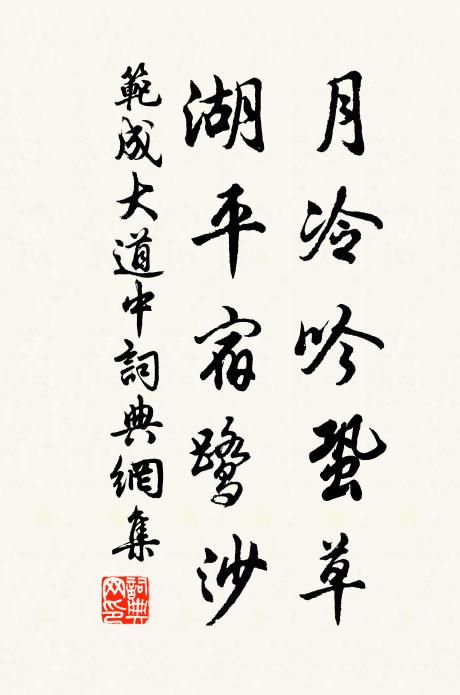 月冷吟蛩草
湖平宿鷺沙
範成大道中詞典網集
詞典網印